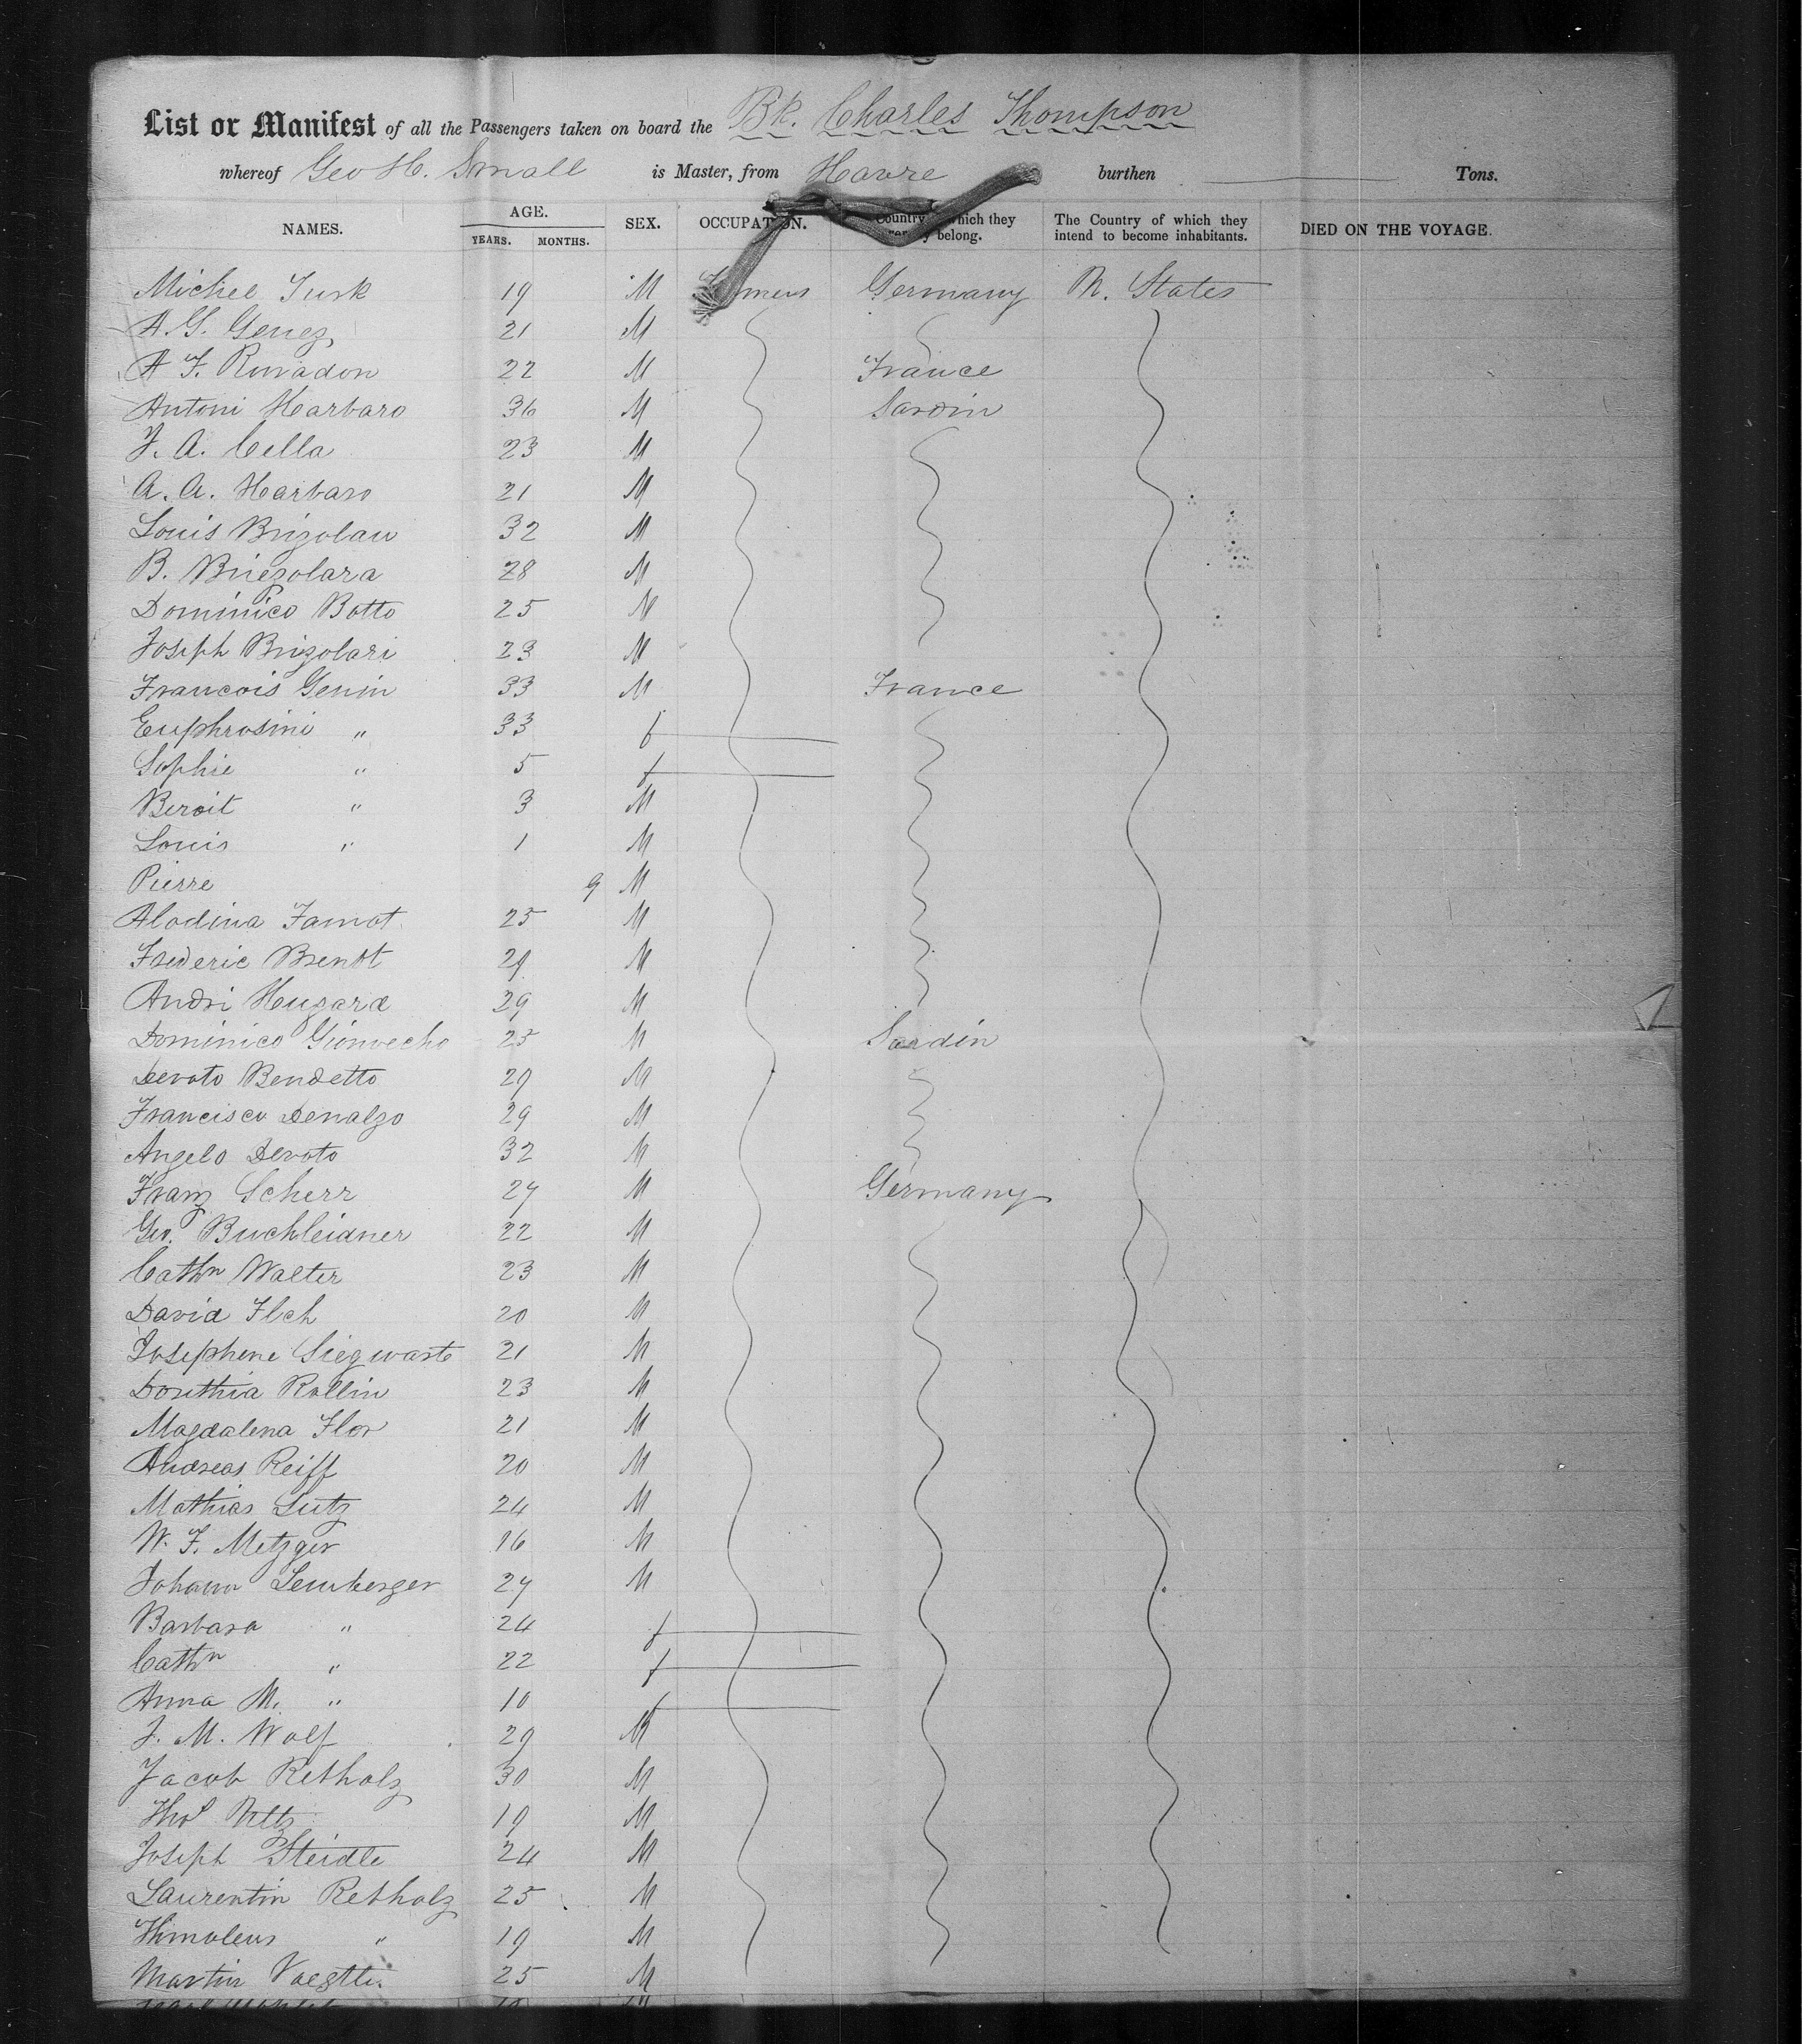 List or Manifest of all the Passengers taken on board the Bk. Charles Thompson
whereof Geo H. Small is Master, from Havre burthen Tons.
NAMES. AGE. YEARS. MONTHS. SEX. OCCUPATION. Country which they belong. The Country of which they intend to become inhabitants. DIED ON THE VOYAGE.
Michel Turk 19 M Germany U. States
A. G. Genez 21 M
A F. Ruvadon 22 M France
Antoni Harbaro 36 M Sardin
J. A. Cella 23 M
A. A. Harbaro 21 M
Louis Brizolau 32 M
B. Briezolara 28 M
Dominico Botto 25 M
Joseph Brizolari 23 M
Francois Genin 33 M France
Euphrosini " 33 f
Sophie " 5 f
Beroit " 3 M
Louis " 1 M
Pierre 9 M
Alodina Jamot 25 M
Frederic Brendt 29 M
Andri Hugard 29 M
Dominico 25 M Sardin
Devoto Bendetto 29 M
Francisco Denalzo 29 M
Angelo Devoto 32 M
Franz Scherr 27 M Germany
Geo. Buchleidner 22 M
Cathn Walter 23 M
David Ilch 20 M
Josephene Siegwarte 21 M
Doruthia Rollin 23 M
Magdalena Flor 21 M
Andreas Reiff 20 M
Mathias Lutz 24 M
W. F. Metzger 16 M
Johann Lemberger 27 M
Barbara " 24 f
Cathn " 22 f
Anna M. " 10 f
J. M. Wolf 29 M
Jacob Retholz 30 M
Thos Veltz 19 M
Joseph Steidle 24 M
Laurentin Retholz 25 M
Himoleus " 19 M
Martin Voegtle 25 M